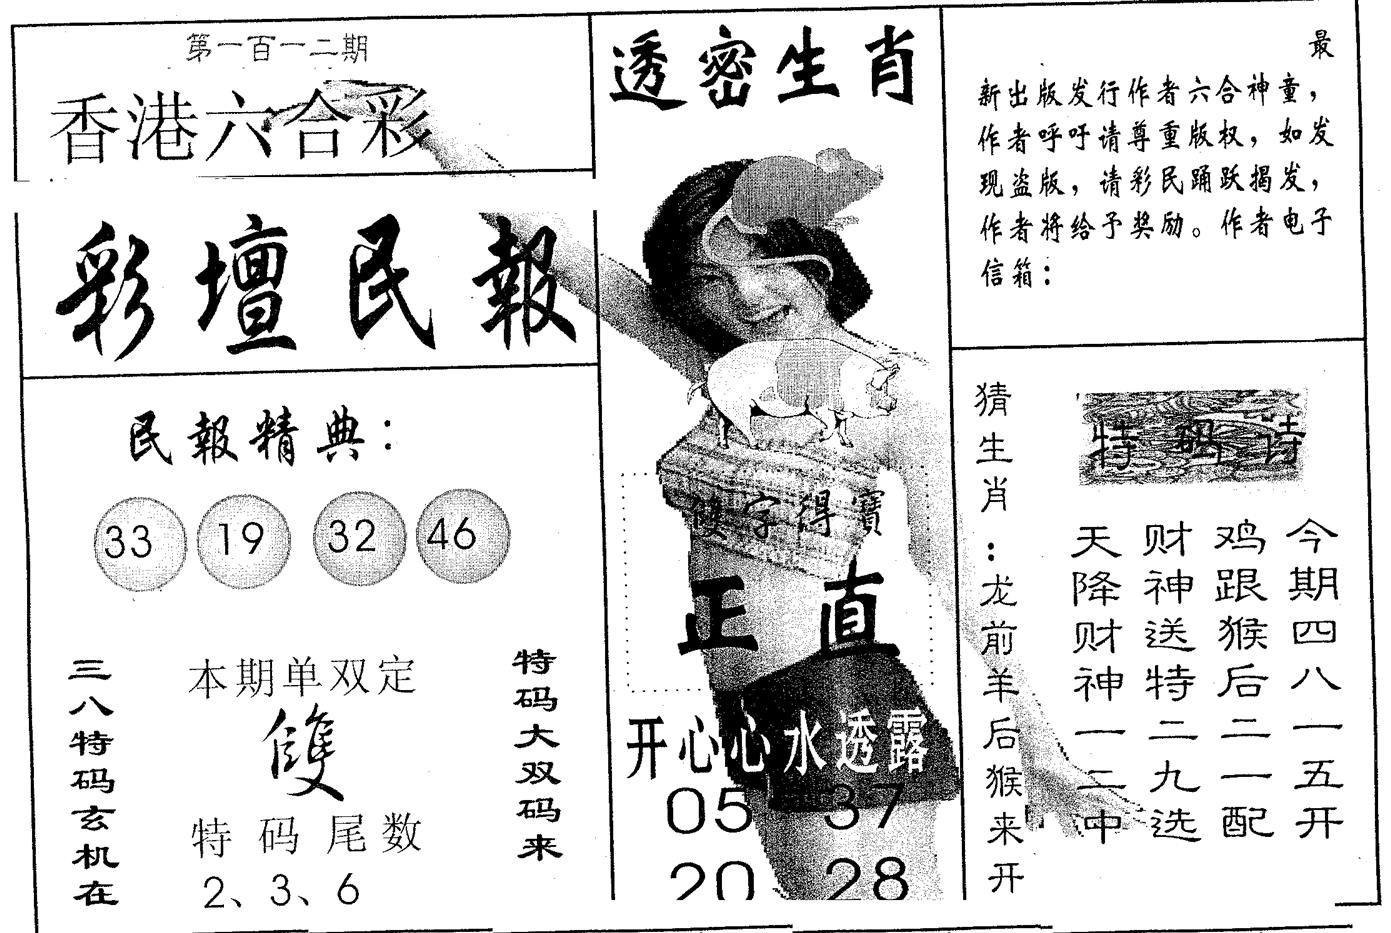 第一百一二期
香港六合彩
彩壇民報
民報精典：
33 19 32 46
三八特码玄机在
本期单双定
雙
特码尾数
2、3、6
特码大双码来
透密生肖
雙字得寶
正直
开心心水透露
05 37
20 28
最
新出版发行作者六合神童，
作者呼吁请尊重版权，如发
现盗版，请彩民踊跃揭发，
作者将给予奖励。作者电子
信箱：
猜生肖：龙前羊后猴来开
特码诗
今期四八一五开
鸡跟猴后二一配
财神送特二九选
天降财神一二中